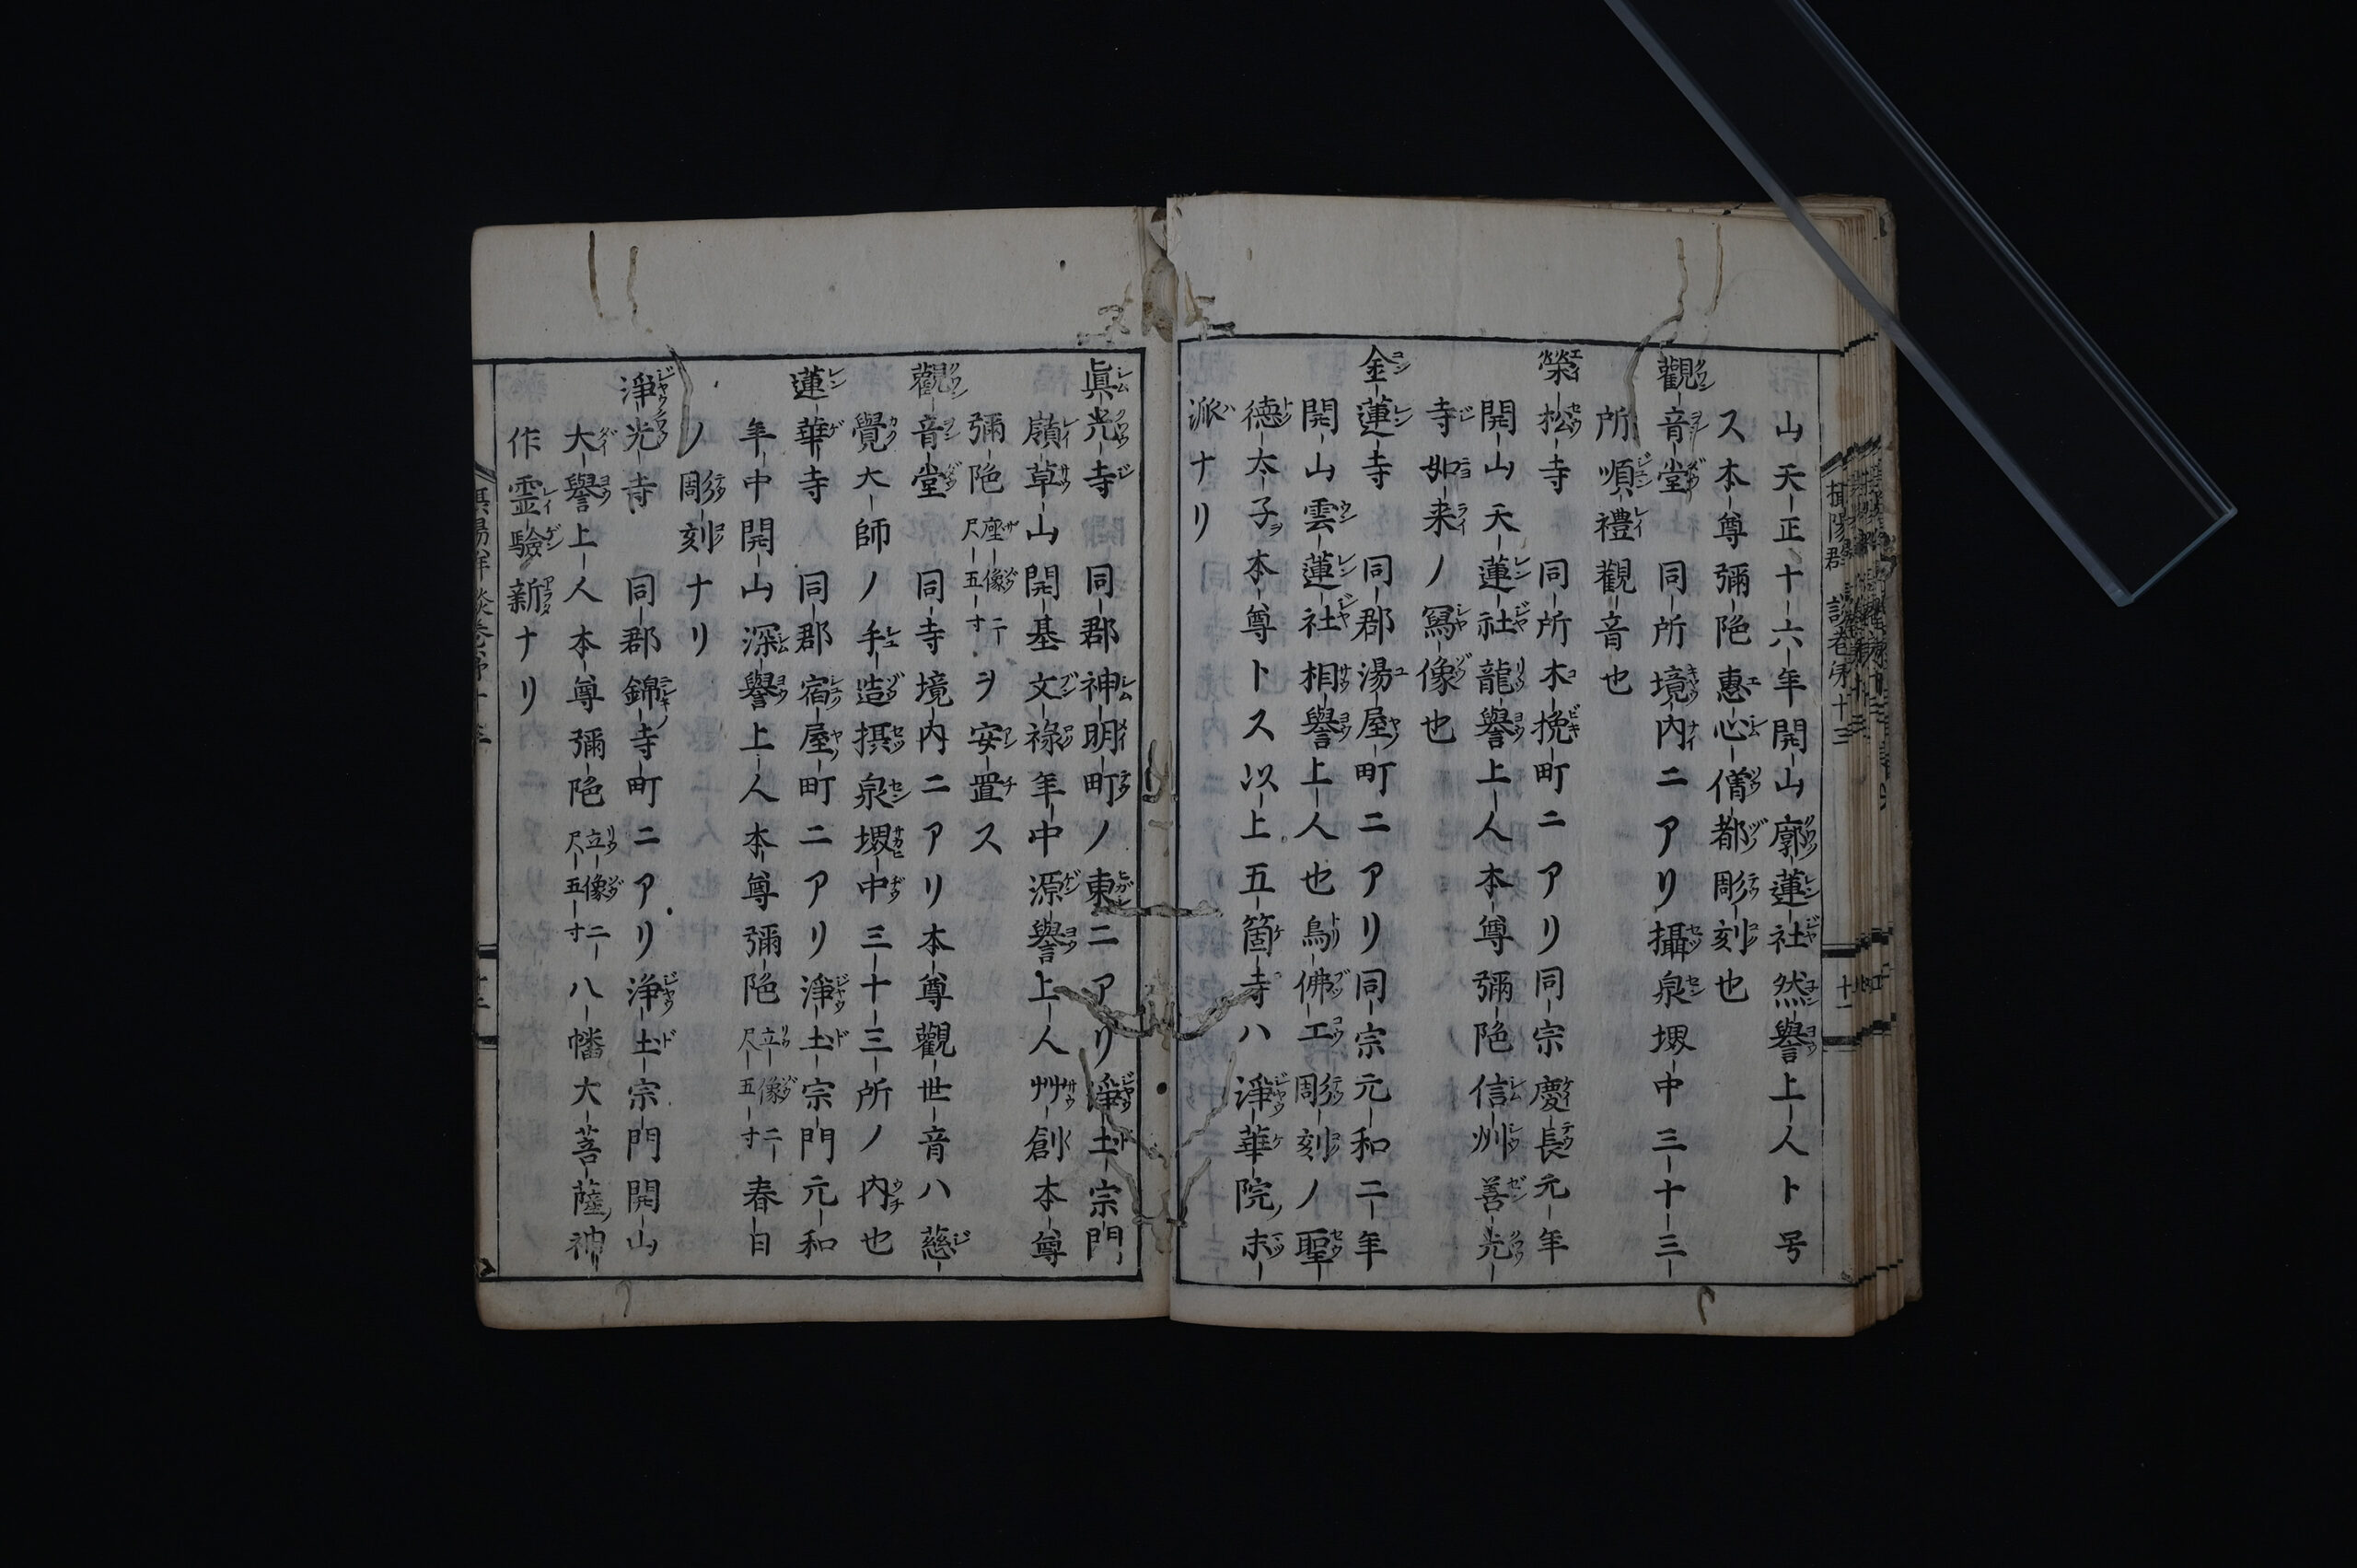 山天正十六年開山廓蓮社然譽上人ト号
ス本尊彌陁惠心僧都彫刻也
觀音堂 同所境内ニアリ攝泉堺中三十三
所順禮觀音也
榮松寺 同所木挽町ニアリ同宗慶長元年
開山天蓮社龍譽上人本尊彌陁信州善光
寺如来ノ冩像也
金蓮寺 同郡湯屋町ニアリ同宗元和二年
開山雲蓮社相譽上人也鳥佛工彫刻ノ聖
德太子ヲ本尊トス以上五箇寺ハ淨華院ノ末
派ナリ
眞光寺 同郡神明町ノ東ニアリ淨土宗門
嶺草山開基文祿年中源譽上人艸創本尊
彌陁座像二尺五寸ヲ安置ス
觀音堂 同寺境内ニアリ本尊觀世音ハ慈
覺大師ノ手造摂泉堺中三十三所ノ内也
蓮華寺 同郡宿屋町ニアリ淨土宗門元和
年中開山深譽上人本尊彌陁立像二尺五寸春日
ノ彫刻ナリ
淨光寺 同郡錦ノ寺町ニアリ淨土宗門開山
大譽上人本尊彌陁立像二尺五寸八幡大菩薩ノ神
作霊驗新ナリ